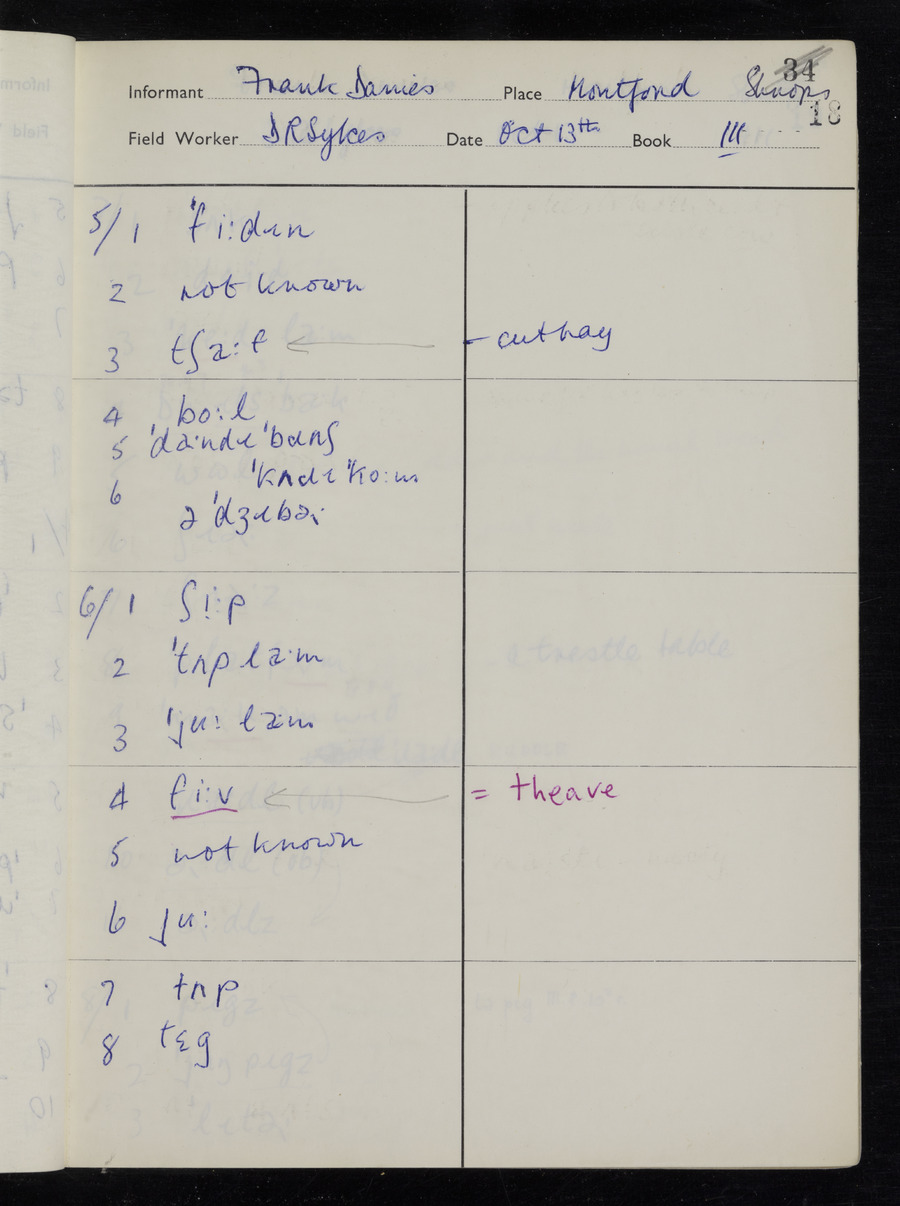 34
Informant Frank Davies Place Montford Shrops
18
Field Worker D R Sykes Date Oct 13th Book III
5/1 ˈfiːdɪn
2 not known
3 tʃaːf – cut hay
4 boːl
5 ˈdandɪˈbɒnʃ
6 ˈkʌdɪˈkoːm
əˈdʒɪbəi
6/1 ʃiːp
2 ˈtʌp lamː
3 ˈjuː lam
4 fiːv = theave
5 not known
6 juː
7 tʌp
8 tɛg